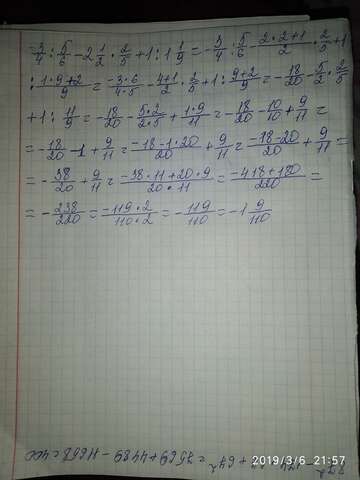 -3/4 : 5/6 - 2 1/2 · 2/5 + 1 : 1 1/9 = -3/4 : 5/6 - 2·2+1/2 · 2/5 + 1
: 1·9+2/9 = -3·6/4·5 - 4+1/2 · 2/5 + 1 : 9+2/9 = -18/20 - 5/2 · 2/5
+ 1 : 11/9 = -18/20 - 5·2/2·5 + 1·9/11 = -18/20 - 10/10 + 9/11 =
= -18/20 - 1 + 9/11 = -18-1·20/20 + 9/11 = -18-20/20 + 9/11 =
= -38/20 + 9/11 = -38·11+20·9/20·11 = -418+180/220 =
= -238/220 = -119·2/110·2 = -119/110 = -1 9/110
+ 67² = 7569 + 4489 - 11658 = 400
2019/3/6 21:57